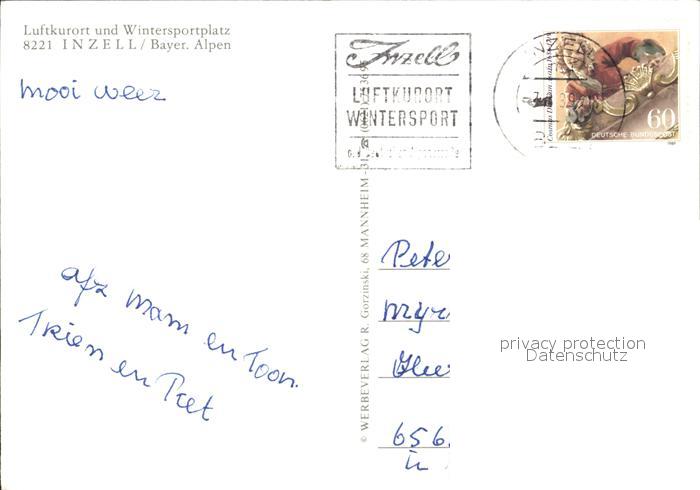 Luftkurort und Wintersportplatz
8221 INZELL/Bayer. Alpen
mooi weer
afz mam en Toon.
Trien en Piet
Inzell
LUFTKURORT
WINTERSPORT
60
DEUTSCHE BUNDESPOST
© WERBEVERLAG R. Gorzinski, 68 MANNHEIM-31
Pete
656
privacy protection
Datenschutz